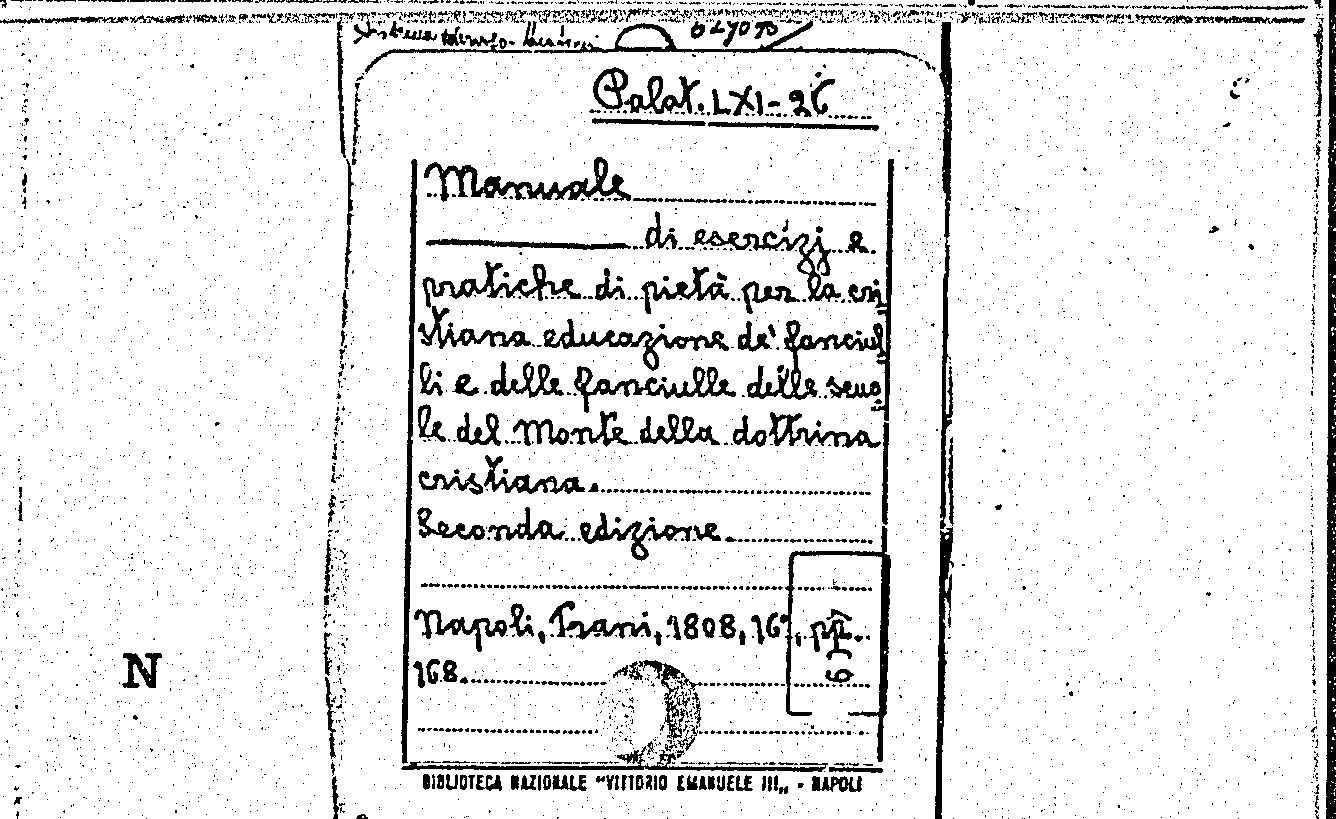 Palat. LXI-26
Manuale
di esercizj e
pratiche di pietà per la cri
stiana educazione de' fanciul
li e delle fanciulle delle scuo
le del Monte della dottrina
cristiana.
Seconda edizione.
Napoli, Trani, 1808, 16°, pp.
168.
N
BIBLIOTECA NAZIONALE "VITTORIO EMANUELE III„ - NAPOLI